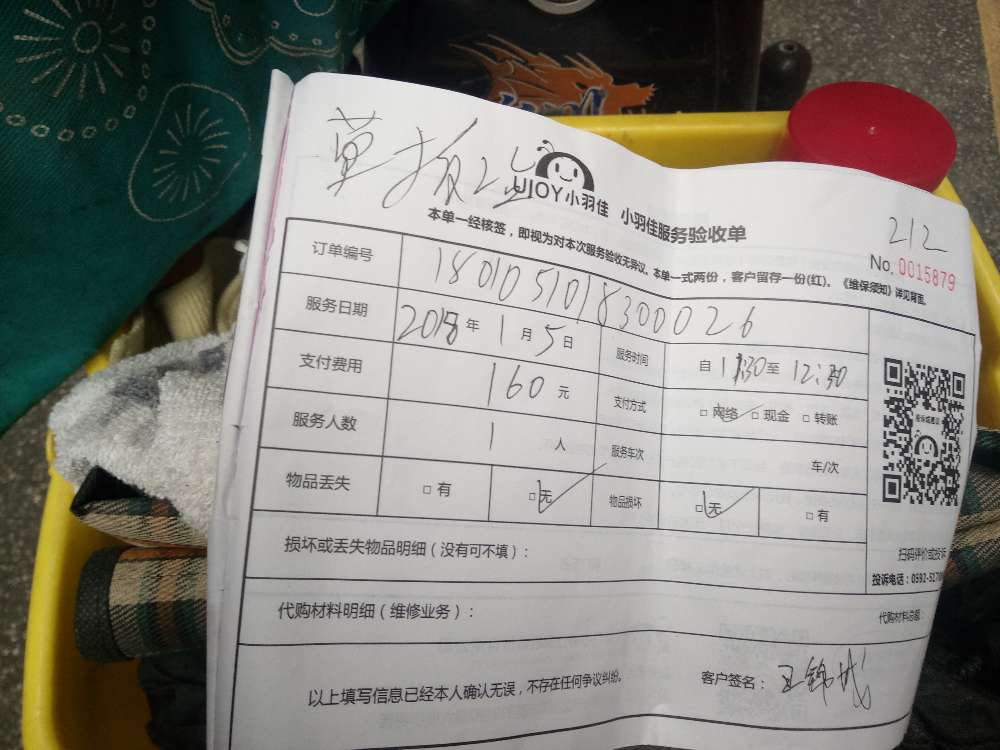 212
UJOY小羽佳 小羽佳服务验收单
No. 0015879
本单一经核签，即视为对本次服务验收无异议。本单一式两份，客户留存一份(红)。《维保须知》详见背面。
订单编号 1801051018300026
服务日期 2018年1月5日 服务时间 自11:30至12:30
支付费用 160元 支付方式 □网络 □现金 □转账
服务人数 1人 服务车次 车/次
物品丢失 □有 □无 物品损坏 □无 □有
扫码评价或投诉
损坏或丢失物品明细（没有可不填）：
投诉电话：0592-5170
代购材料明细（维修业务）： 代购材料总额：
以上填写信息已经本人确认无误，不存在任何争议纠纷。 客户签名：王锦城